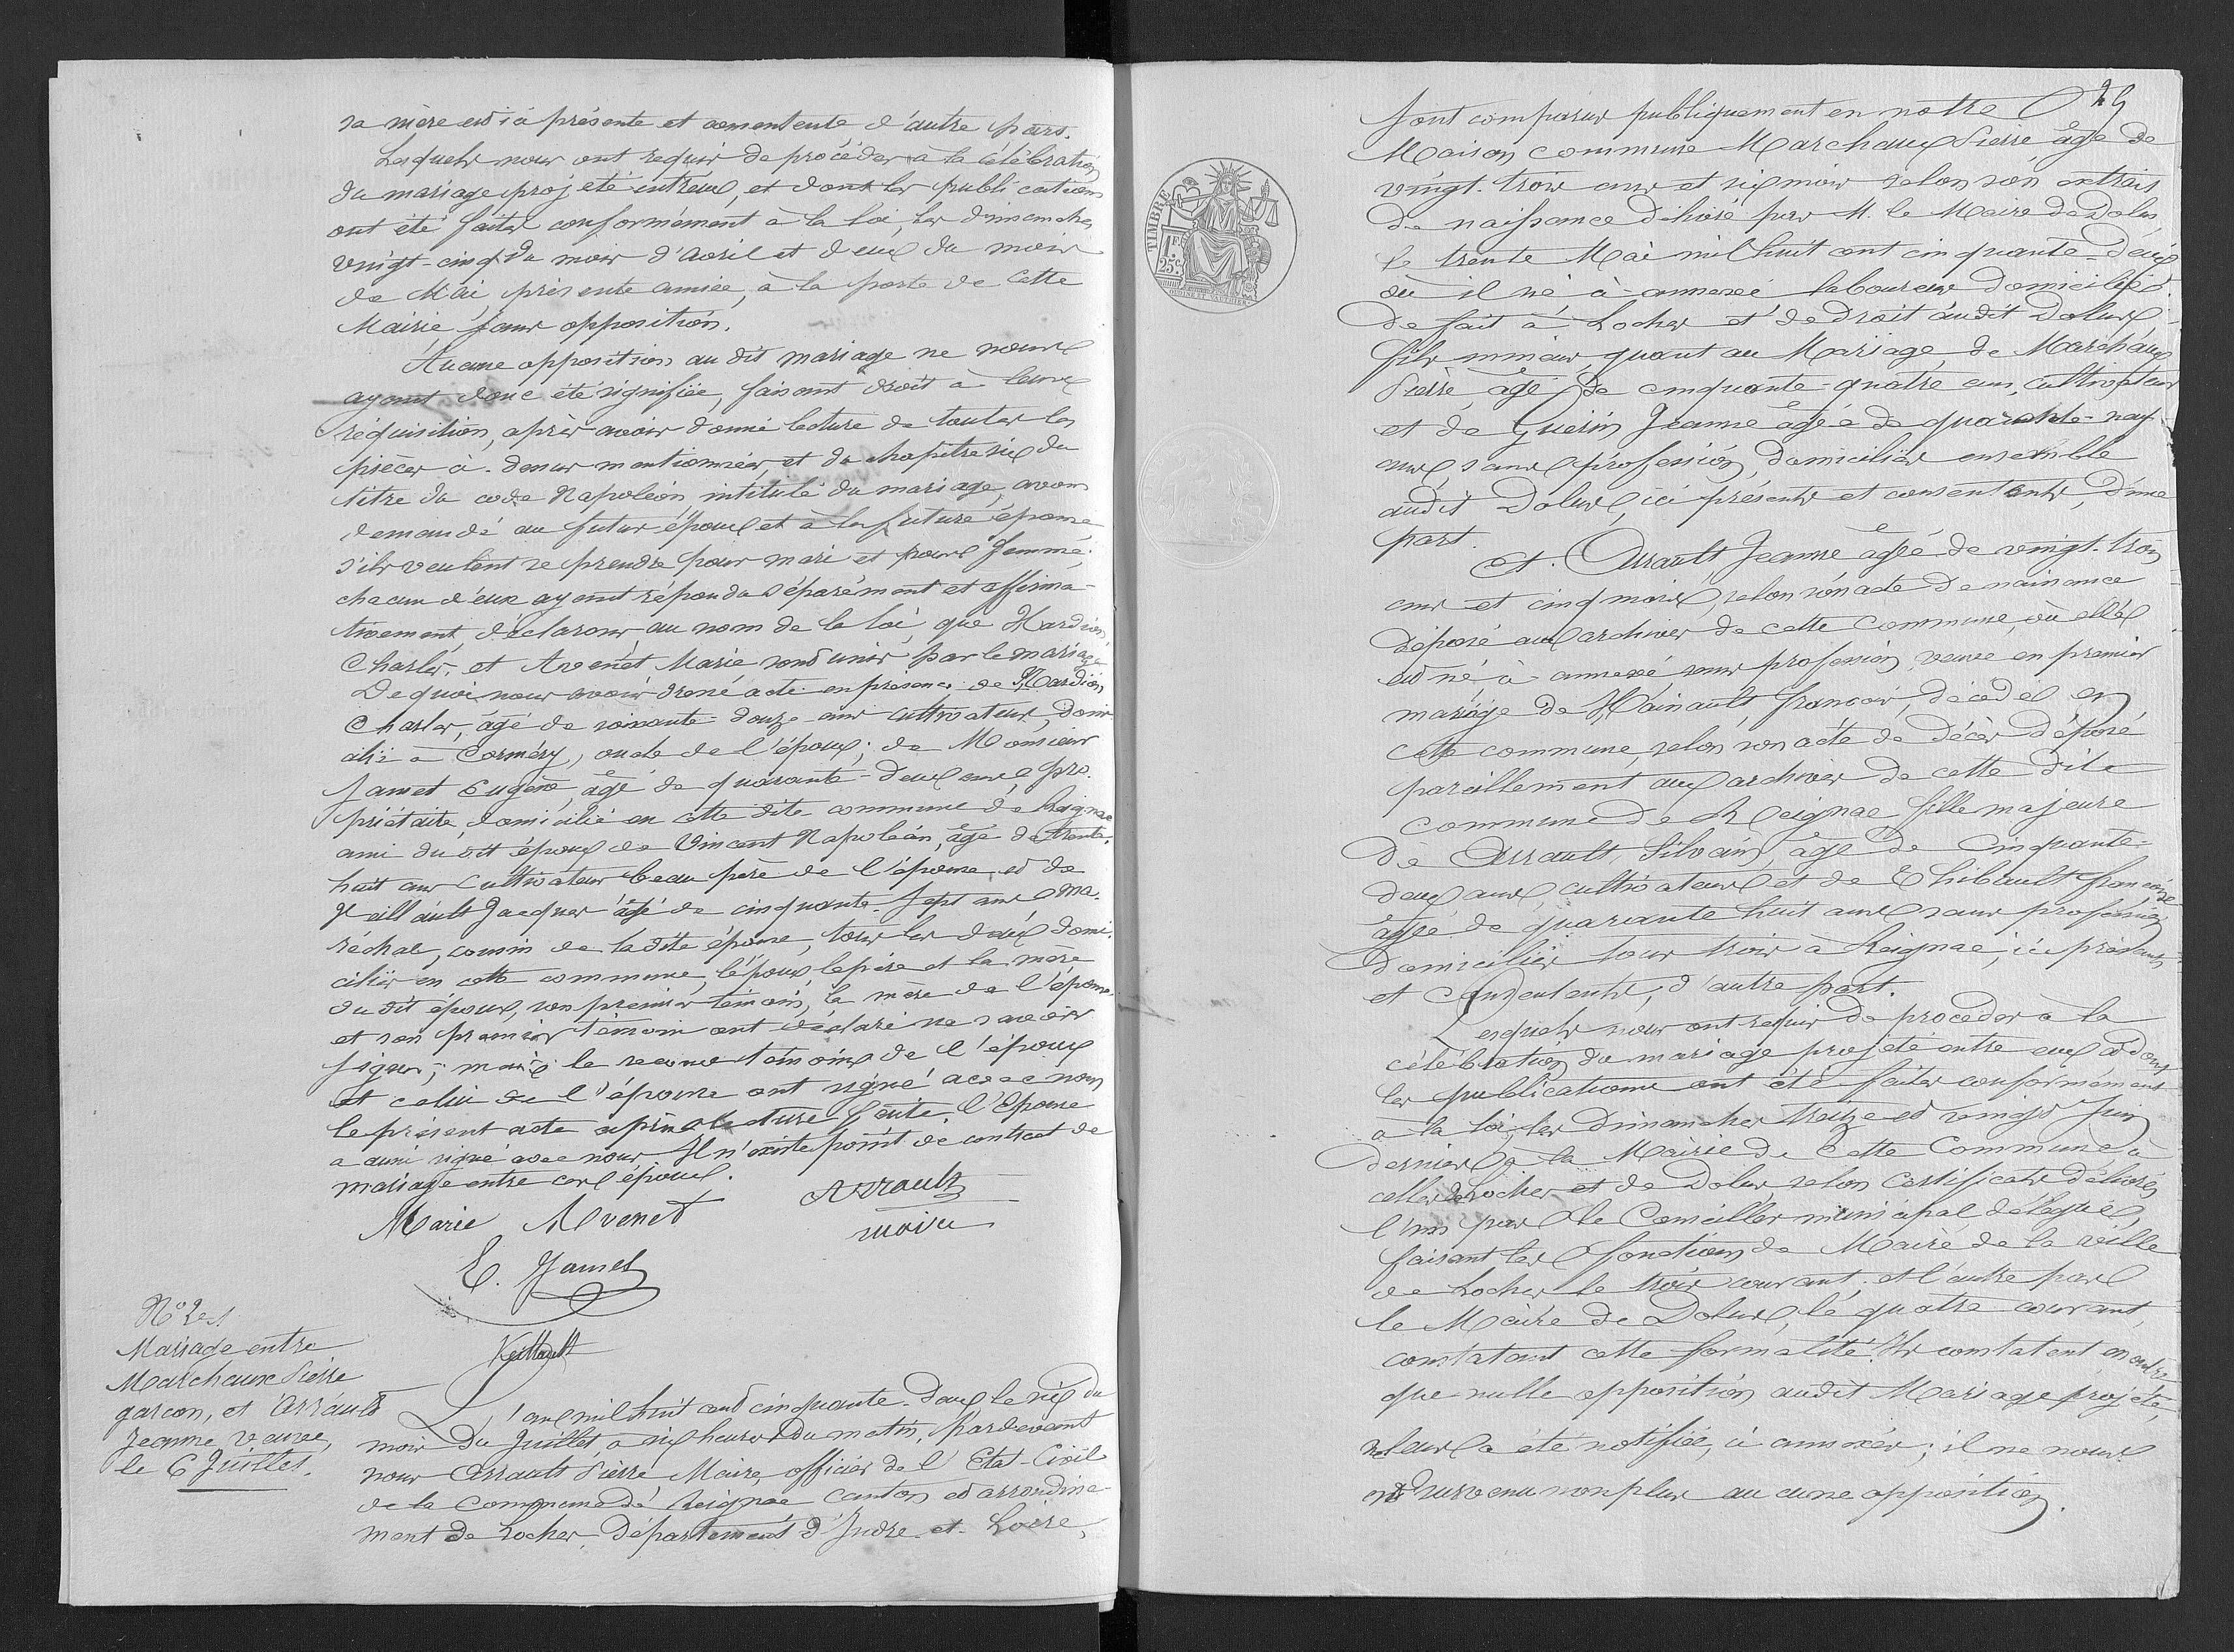 sa mère ici présente et consentente d'autre part.
Lesquels nous ont requis de procéder à la célébration
du mariage projeté entreux, et dont les publications
ont été faites conformément à la loi, les dimanches
vingt-cinq du mois d'avril et deux du mois
de Mai présente année, à la porte de cette
Mairie sans opposition.
Aucune opposition au dit mariage ne nous
ayant donc été signifiée, faisant droit à leurs
réquisition, après avoir donné lecture de toutes les
pièces ci-dessus mentionnées, et du chapitre six du
titre du code Napoléon intitulé du mariage, avons
demandé au futur époux et à la future épouse
s'ils veulent se prendre pour mari et pour femme,
chacun d'eux ayant répondu séparément et affirma-
tivement, déclarons au nom de la loi, que Hardion
Charles, et Avenet Marie sont unis par le mariage
De quoi nous avons dressé acte en présence de Hardion
Charles, âgé de soixante-douze ans cultivateur, domi-
cilié à Corméry, oncle de l'époux; de Monsieur
Jamet Eugène, âgé de quarante-deux ans, pro-
priétaire, domicilié en cette dite commune de Reignac
ami du dit époux de Vincent Napoléon, âgé de trente-
huit ans cultivateur beau père de l'épouse et de
Veillault Jacques âgé de cinquante-sept ans ma-
réchal, cousin de la dite épouse, tous les deux domi-
ciliés en cette commune, l'époux le père et la mère
du dit époux, son premier témoin, la mère de l'épouse
et son premier témoin ont déclaré ne savoir
signer; mais le second témoins de l'époux
et celui de l'épouse ont signé avec nous
le présent acte après lecture faite. L'Epouse
a aussi signé avec nous Il n'existe point de contract de
mariage entre ces époux.
Marie Avenet
Arrault
maire
E. Jamet
Veillault
Mariage entre
Marchaux Pierre
garçon, et Arrault
Jeanne veuve,
le 6 Juillet.
L'an mil huit cent cinquante-deux le six du
mois de Juillet, a six heures du matin, pardevant
nous Arrault Pierre, Maire, officier de l'Etat-Civil
de la Commune de Reignac canton et arrondisse-
ment de Loches, Département d'Indre-et-Loire,
TIMBRE
1 F.
25 c.
sont comparus publiquement en notre
Maison commune Marchaux Pierre âgé de
vingt-trois ans et six mois selon son extrait
de naissance délivré par M. le Maire de Dolus,
le trente Mai mil huit cent cinquante-deux
où il né ci-annexé laboureur domicilié
de fait à Loches et de droit audit Dolus
fils mineur, quant au Mariage, de Marchaux
Pierre, âgé de cinquante-quatre ans, cultivateur
et de Guérin Jeanne âgée de quarante-neuf
ans, sans profession, domiciliés ensemble
audit Dolus, ici présents et consentents, d'une
part.
Et Arrault Jeanne âgée de vingt-trois
ans et cinq mois, selon son acte de naissance
déposé aux archives de cette commune, où elle
est né ci-annexé sans profession, veuve en premier
mariage de Hainault françois, décedé en
cette commune, selon son acte de décès déposé
pareillement aux archives de cette dite
commune de Reignac fille majeure
de Arrault Silvain, âgé de Cinquante-
deux ans, cultivateur et de Thibault françoise
âgée de quarante huit ans sans profession
domiciliés tous trois à Reignac, ici présents
et consentents, d'autre part.
Lesquels nous ont requis de procéder à la
célébration du mariage projeté entre eux et dont
les publications ont été faites conformément
à la loi, les dimanches treize et vingt Juin
dernier à la Mairie de Cette Commune à
celles de Loches et de Dolus selon certificats délivrés
l'un par le Conseiller municipal délégué,
faisant les fonctions de Maire de la ville
de Loches le trois courant, et l'autre par
le Maire de Dolus, le quatre courant,
constatant cette formalité. Ils constatent en outre
que nulle opposition audit Mariage projeté,
ne leur a été notifiée, ci annexés; il ne nous
est survenu non plus aucune opposition.